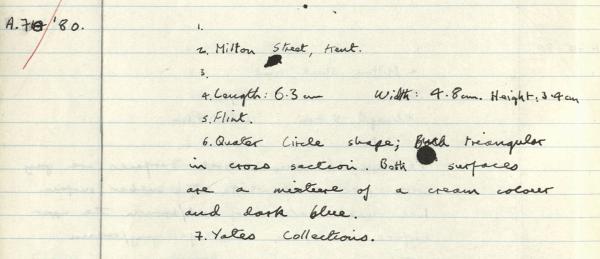 A.70 '80.
1.
2. Milton Street, Kent.
3.
4. Length: 6.3cm Width: 4.8cm. Height: 3.4cm
5. Flint.
6. Quater Circle shape; triangular
in cross section. Both surfaces
are a mixture of a cream colour
and dark blue.
7. Yates Collections.